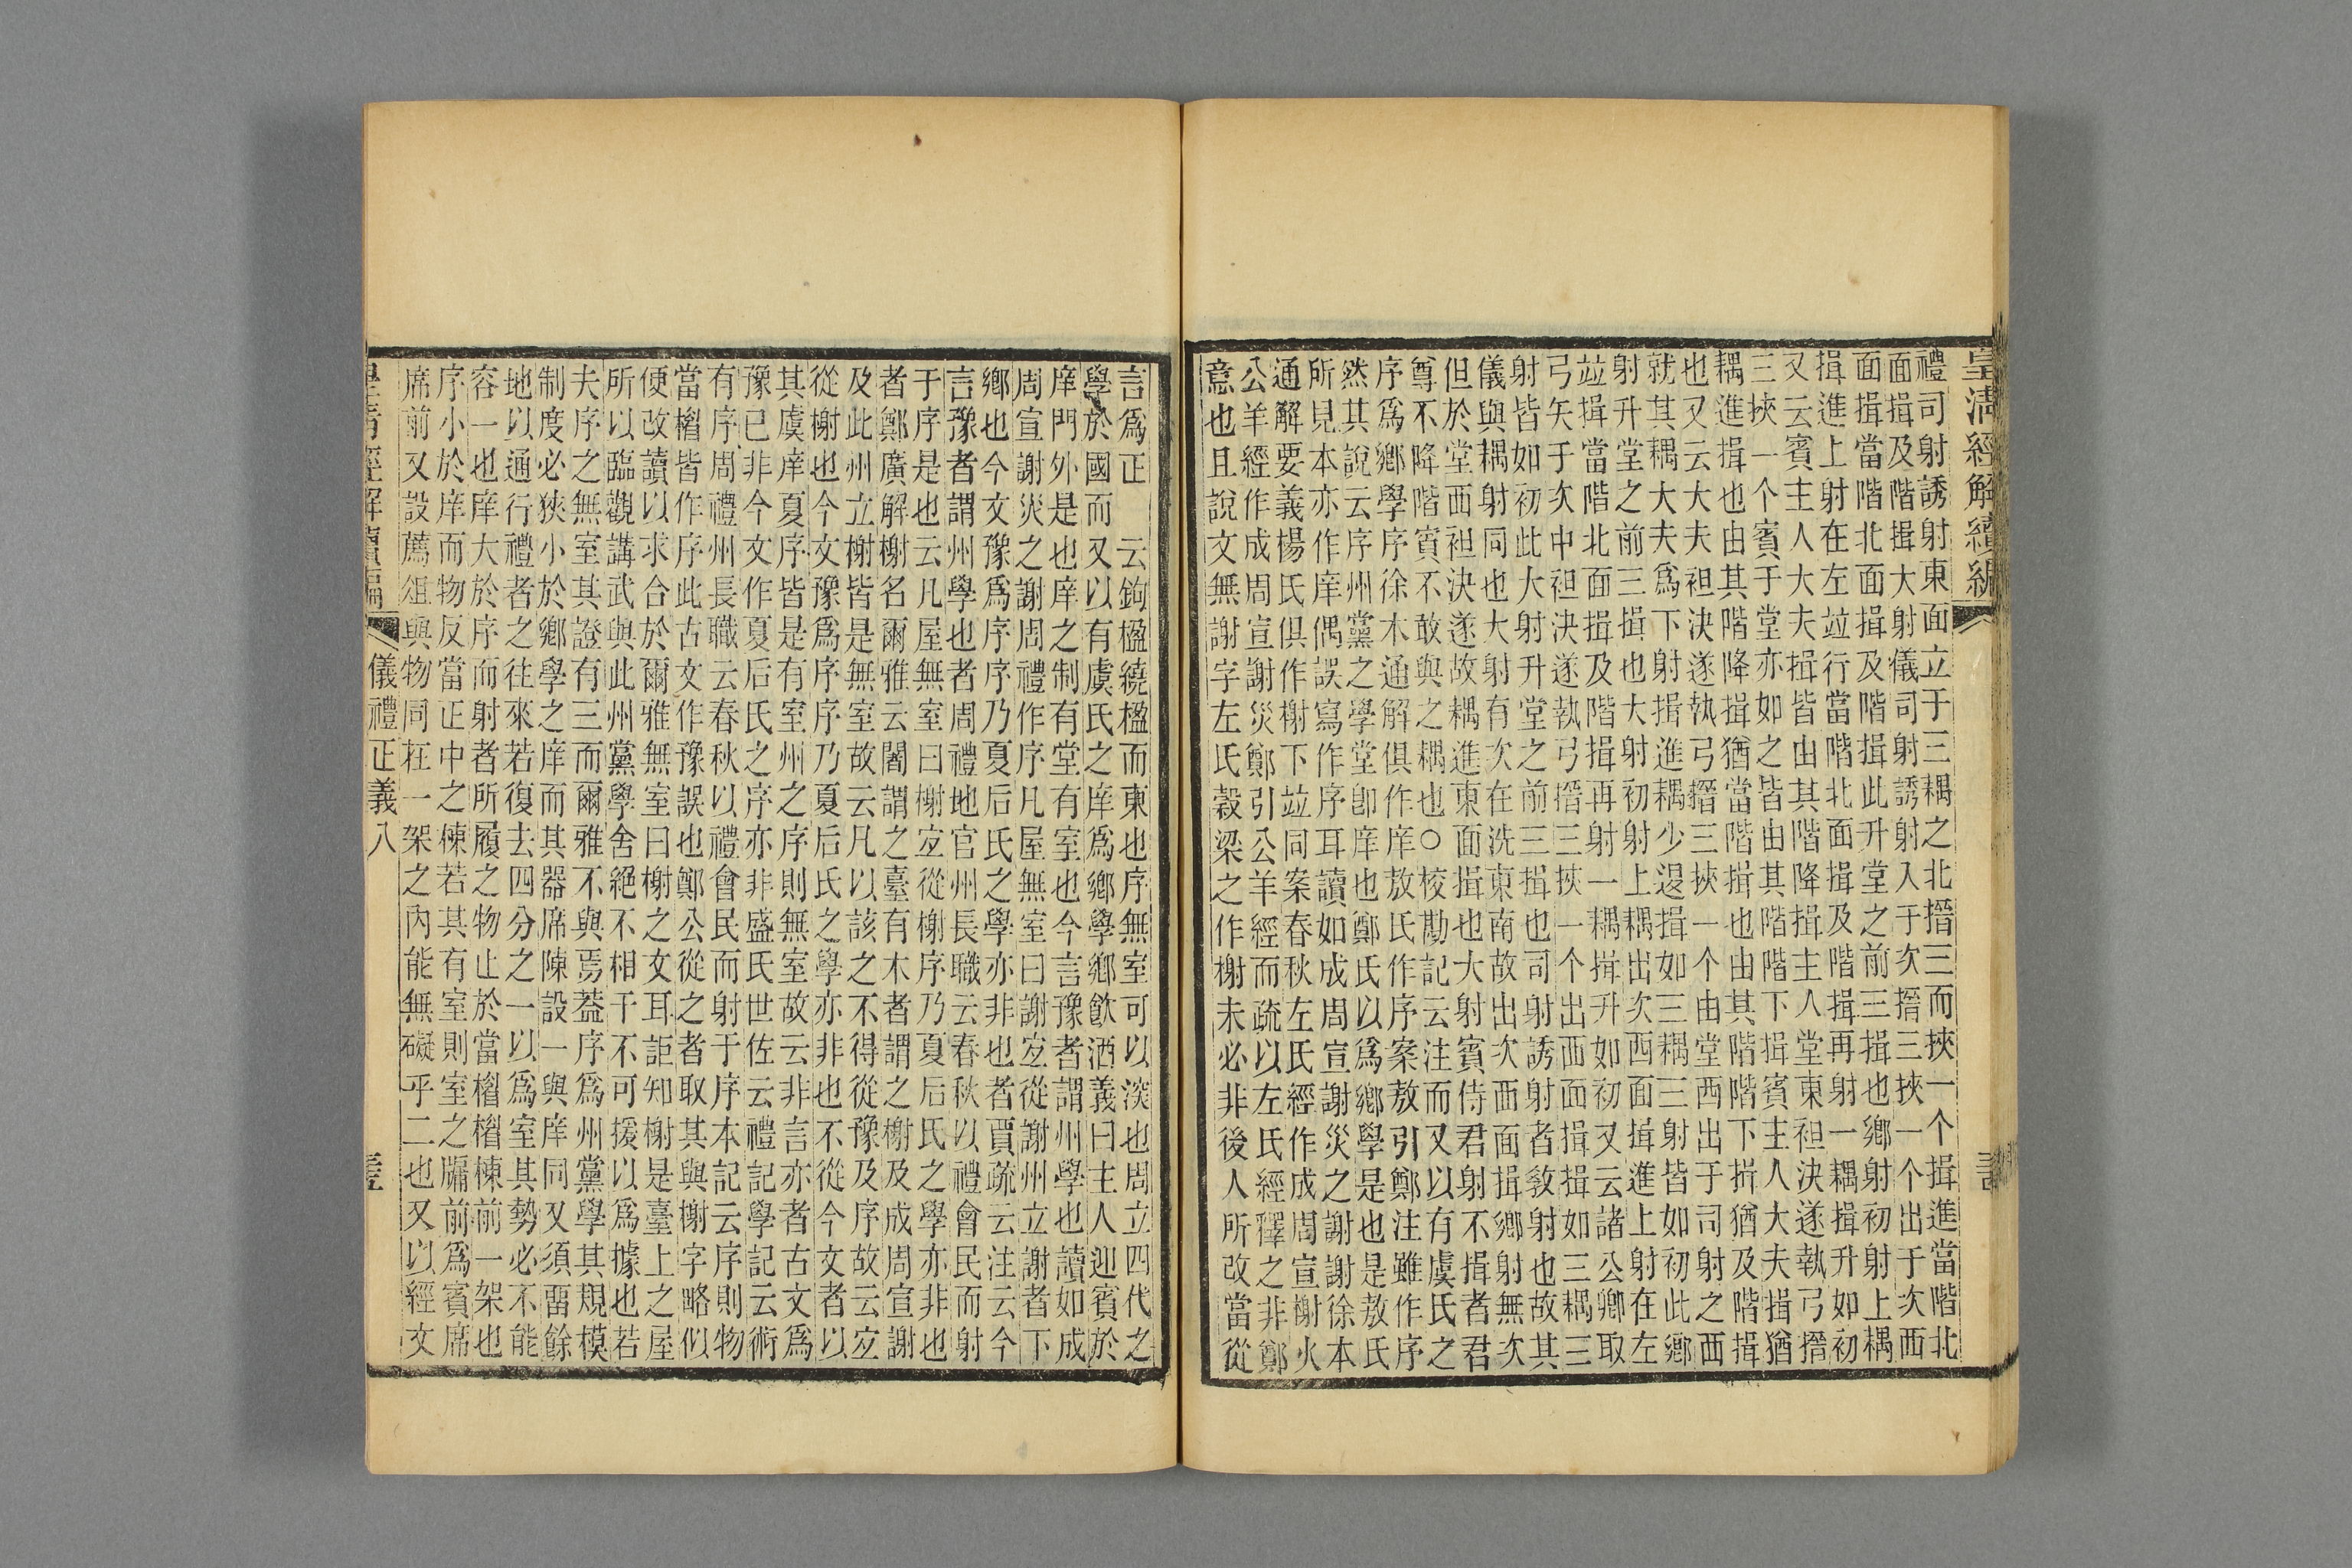 皇清經解續編
禮司射誘射東面立于三耦之北搢三而挾一个揖進當階北
面揖及階揖大射儀司射誘射入于次搢三挾一个出于次西
面揖當階北面揖及階揖此升堂之前三揖也鄉射初射上耦
揖進上射在左並行當階北面揖及階揖再射一耦揖升如初
又云賓主人大夫揖皆由其階降揖主人堂東袒決遂執弓搢
三挾一个賓于堂亦如之皆由其階階下揖賓主人大夫揖猶
耦進揖也由其階降揖猶當階揖也由其階階下揖猶及階揖
也又云大夫袒決遂執弓搢三挾一个由堂西出于司射之西
就其耦大夫爲下射揖進耦少退揖如三耦三射皆如初此鄉
射升堂之前三揖也大射初射上耦出次西面揖進上射在左
並揖當階北面揖及階揖再射一耦揖升如初又云諸公卿取
弓矢于次中袒決遂執弓搢三挾一个出西面揖揖如三耦三
射皆如初此大射升堂之前三揖也司射誘射者敎射也故其
儀與耦射同也大射有次在洗東南故出次西面揖鄉射無次
但於堂西袒決遂故耦進東面揖也大射賓侍君射不揖者君
尊不降階賓不敢與之耦也○校勘記云注而又以有虞氏之
序爲鄉學序徐木通解俱作庠敖氏作序案敖引鄭注雖作序
然其說云序州黨之學堂卽庠也鄭氏以爲鄉學是也是敖氏
所見本亦作庠偶誤寫作序耳讀如成周宣謝災之謝謝徐本
通解要義楊氏俱作榭下並同案春秋左氏經作成周宣榭火
公羊經作成周宣謝災鄭引公羊經而疏以左氏經釋之非鄭
意也且說文無謝字左氏穀梁之作榭未必非後人所改當從
言爲正　云鉤楹繞楹而東也序無室可以深也周立四代之
學於國而又以有虞氏之庠爲鄉學鄉飮酒義曰主人迎賓於
庠門外是也庠之制有堂有室也今言豫者謂州學也讀如成
周宣謝災之謝周禮作序凡屋無室曰謝宐從謝州立謝者下
鄉也今文豫爲序序乃夏后氏之學亦非也者賈疏云注云今
言豫者謂州學也者周禮地官州長職云春秋以禮會民而射
于序是也云凡屋無室曰榭宐從榭序乃夏后氏之學亦非也
者鄭廣解榭名爾雅云闍謂之臺有木者謂之榭及成周宣謝
及此州立榭皆是無室故云凡以該之不得從豫及序故云宐
從榭也今文豫爲序序乃夏后氏之學亦非也不從今文者以
其虞庠夏序皆是有室州之序則無室故云非言亦者古文爲
豫已非今文作夏后氏之序亦非盛氏世佐云禮記學記云術
有序周禮州長職云春秋以禮會民而射于序本記云序則物
當楣皆作序此古文作豫誤也鄭公從之者取其與榭字略似
便改讀以求合於爾雅無室曰榭之文耳詎知榭是臺上之屋
所以臨觀講武與此州黨學舍絕不相干不可援以爲據也若
夫序之無室其證有三而爾雅不與焉蓋序爲州黨學其規模
制度必狹小於鄉學之庠而其器席陳設一與庠同又須畱餘
地以通行禮者之往來若復去四分之一以爲室其勢必不能
容一也庠大於序而射者所履之物止於當楣楣棟前一架也
序小於庠而物反當正中之棟若其有室則室之牖前爲賓席
席前又設薦俎與物同在一架之內能無礙乎二也又以經文
皇清經解續編　儀禮正義八